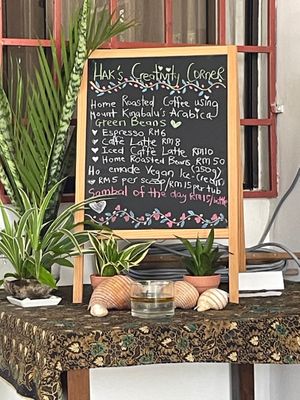 HAK's Creativity Corner
Home Roasted Coffee using
Mount Kinabalu's Arabica
Green Beans
Espresso RM6
Caffe Latte RM8
Iced Caffe Latte RM10
Home Roasted Beans RM50
Homemade Vegan Ice
RM5 per scoop/RM15 per tub
Sambal of the day RM15/bottle